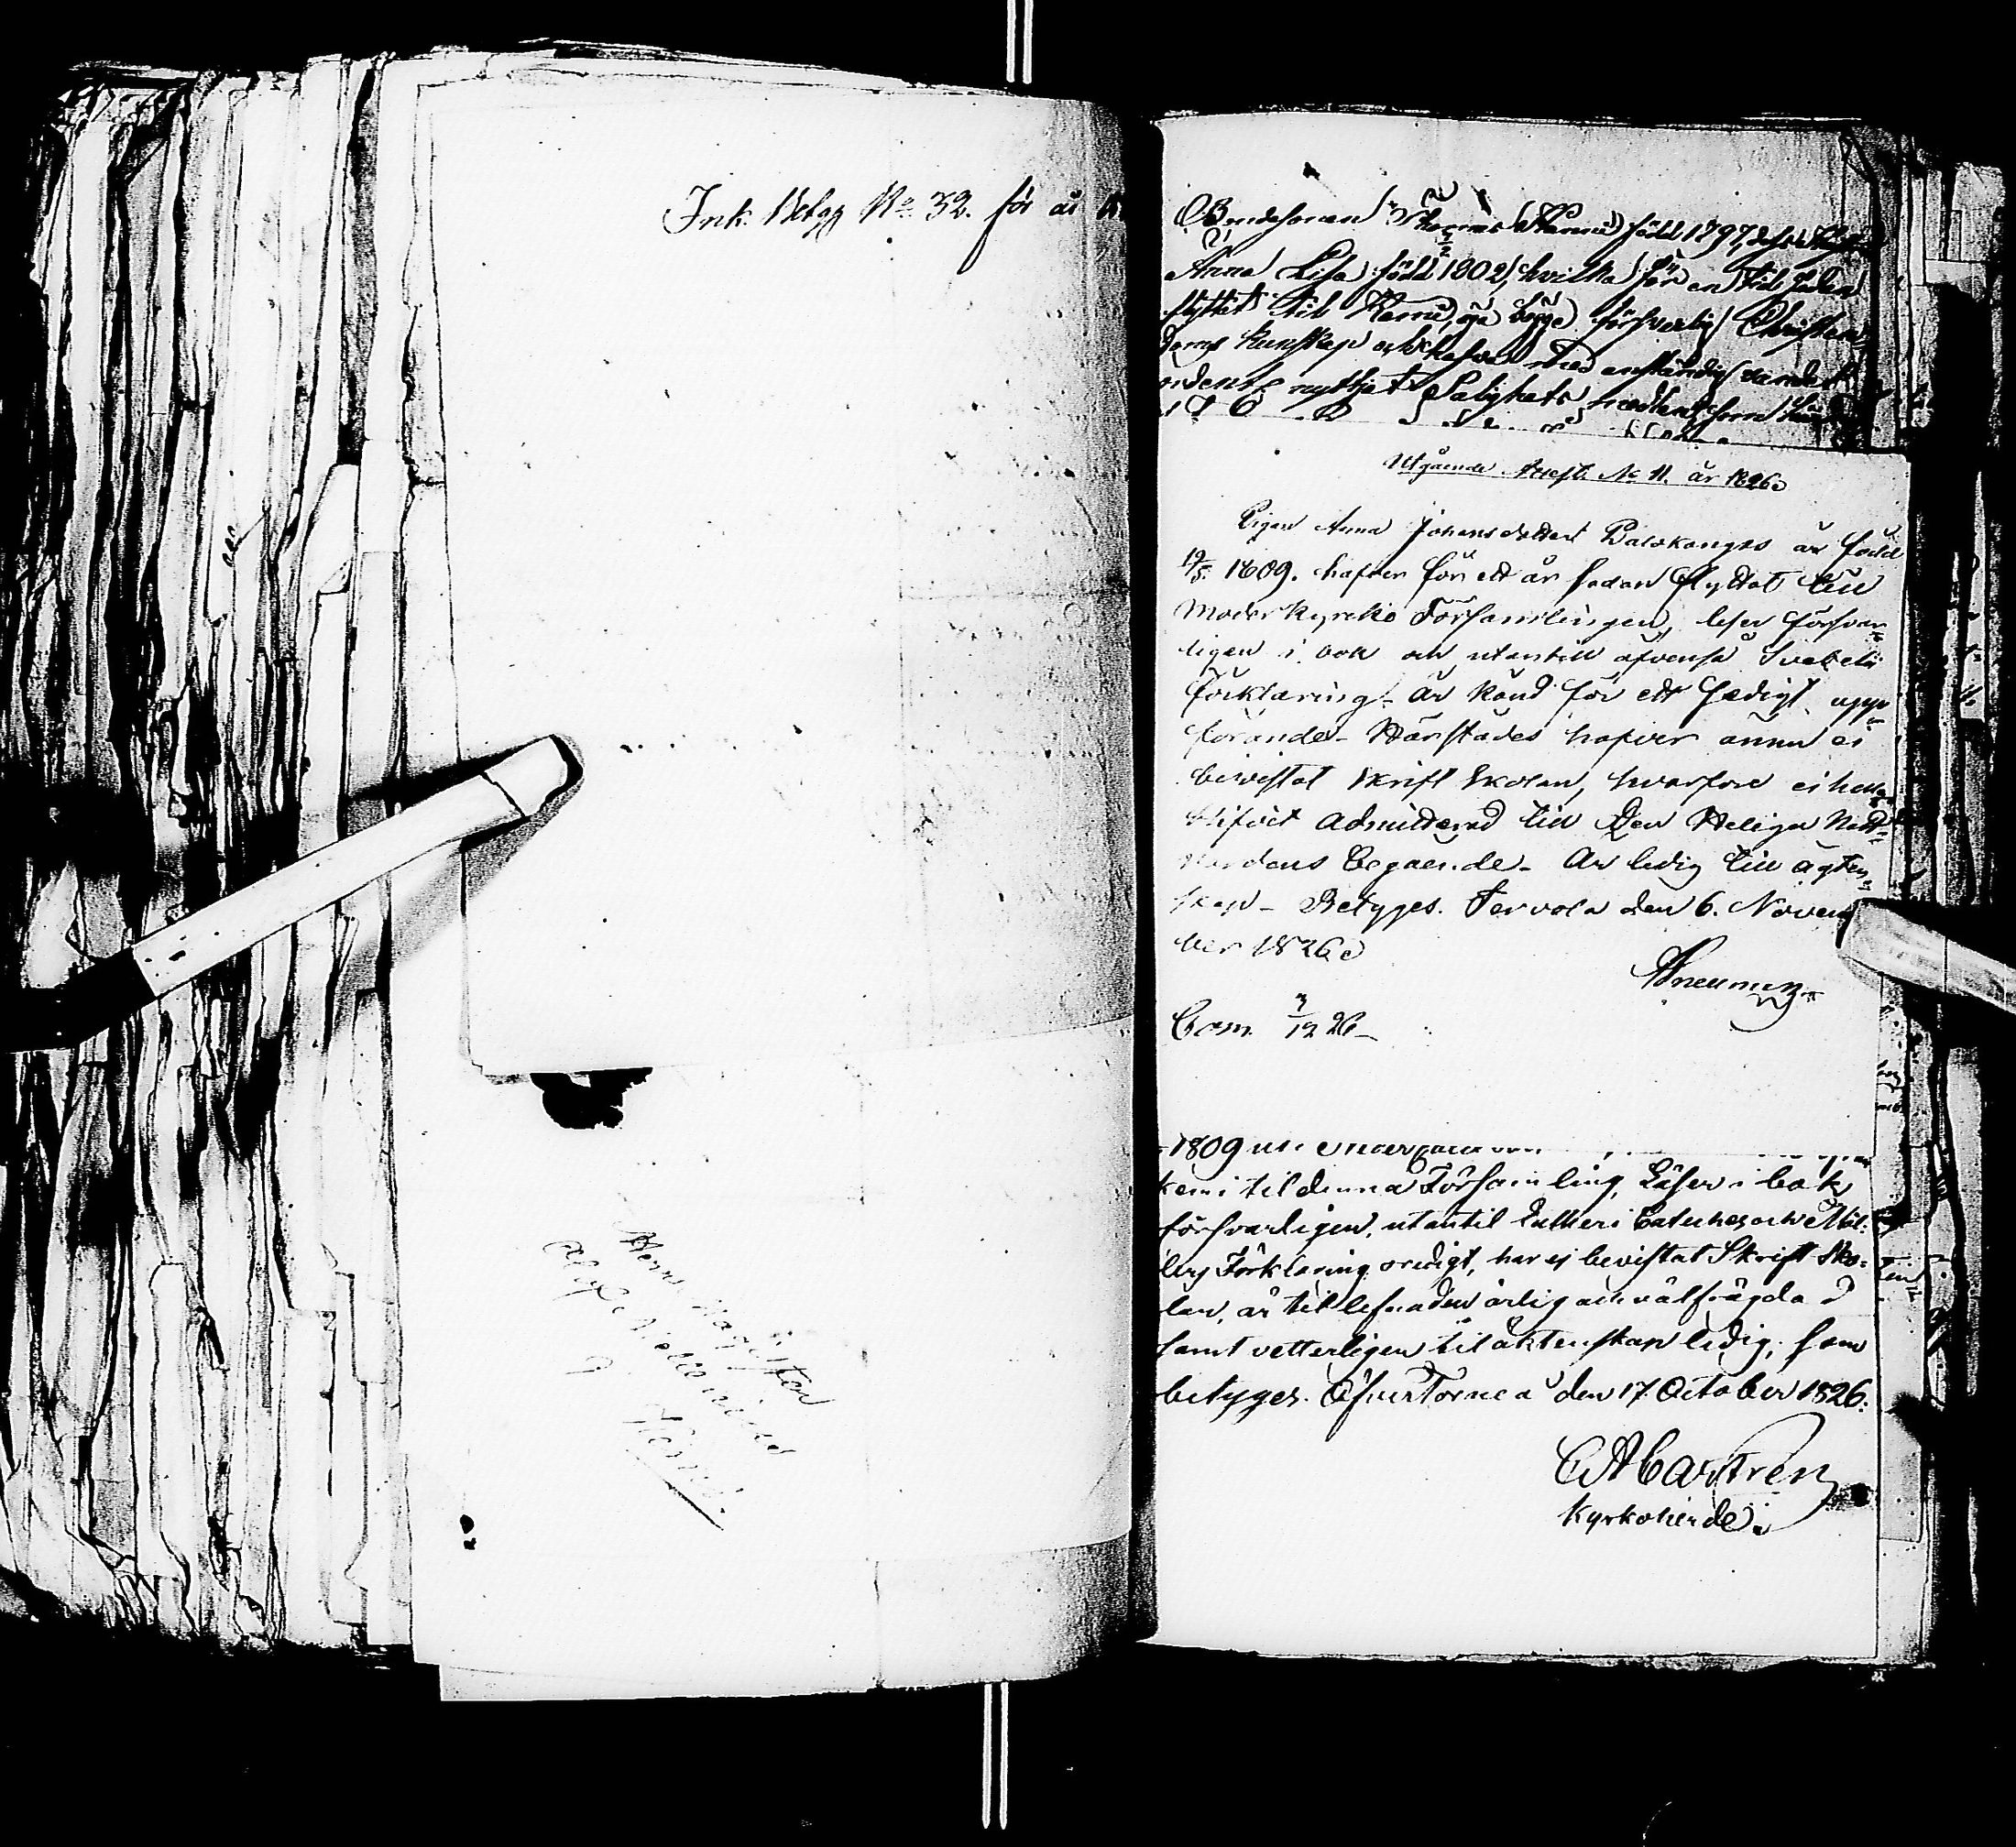 Ink. Betyg No. 32. för år
Herr Magister
Kemi.
Bondesonen Thomas född 1797, dess
Anna Lisa född 1802, hvilka för en tid sedan
flyttat till Kemi, äga bägge försvarlig Christen-
doms kunskap och hafva med anständig vandel
nyttjat Salighets medlen, som
Utgående Attest No 11. år 1826
Pigan Anna Johansdotter är född
19/5. 1809. hafver för ett år sedan flyttat till
Moderkyrko Församlingen, läser försvar-
ligen i bok och utantill äfvenså Svebelii
förklaring - är känd för ett sedigt upp-
förande - Härstädes hafver ännu ei
bevistat Skrift Skolan, hvarföre ei heller
blifvit admitterad till Den Heliga Natt-
vardens begående - Är ledig till ägten-
skap - Betyges. Tervola den 6. Novem-
ber 1826
Com. 3/12 26
1809
kom i til denna Församling, Läser i bok
försvarligen, utantil Lutheri Cateches och Möl-
lers Förklaring oredigt, har ej bevistat Skrift Sko-
lan, är til lefnaden ärlig och välfrägdad
samt vetterligen til äktenskap ledig; som
betyges. ÖfverTorneå den 17 October 1826.
CA Castrén
Kyrkoherde.